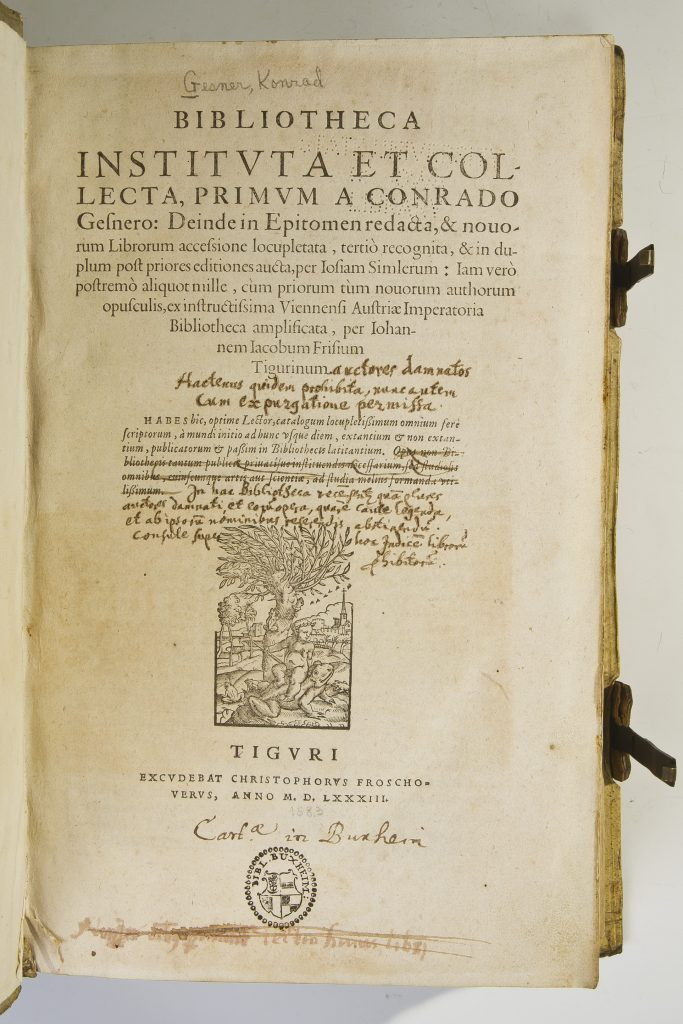 Gesner, Konrad
BIBLIOTHECA
INSTITVTA ET COL-
LECTA, PRIMVM A CONRADO
Geſnero: Deinde in Epitomen redacta, & nouo-
rum Librorum acceſsione locupletata, tertiò recognita, & in du-
plum poſt priores editiones aucta, per Ioſiam Simlerum: Iam verò
poſtremò aliquot mille, cùm priorum tùm nouorum authorum
opuſculis, ex inſtructiſsima Viennenſi Auſtriæ Imperatoria
Bibliotheca amplificata, per Iohan-
nem Iacobum Friſium
Tigurinum. auctores damnatos
Hactenus quidem prohibita, nunc autem
cum expurgatione permissa.
HABES hic, optime Lector, catalogum locupletißimum omnium ferè
ſcriptorum, à mundi initio ad hunc vſque diem, extantium & non extan-
tium, publicatorum & paßim in Bibliothecis latitantium. Opus non Bi-
bliothecis tantum publicis priuatiſue inſtituendis neceſſarium, ſed ſtudioſis
omnibus, cuiuſcunque artis aut ſcientiæ, ad ſtudia melius formanda vti-
lißimum. In hac Bibliotheca
auctores damnati et eorum opera, quare caute legenda,
et ab ipsorum nominibus abstinendum.
Consule hoc Indicem librorum
prohibitorum.
TIGVRI
EXCVDEBAT CHRISTOPHORVS FROSCHO-
VERVS, ANNO M. D. LXXXIII.
1583
Cartæ in Buxheim
BIBL. BUXHEIM